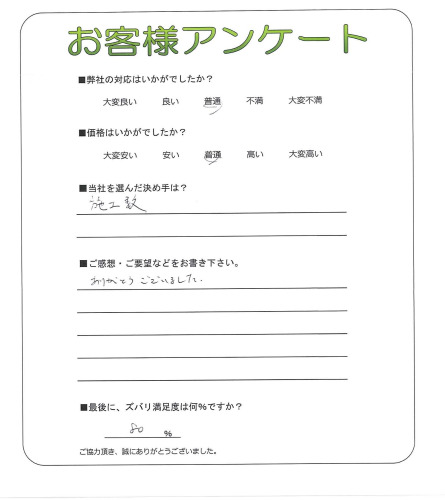 お客様アンケート
■弊社の対応はいかがでしたか?
大変良い 良い 普通 不満 大変不満
■価格はいかがでしたか?
大変安い 安い 普通 高い 大変高い
■当社を選んだ決め手は?
施工数
■ご感想・ご要望などをお書き下さい。
ありがとうございました.
■最後に、ズバリ満足度は何%ですか?
80 %
ご協力頂き、誠にありがとうございました。